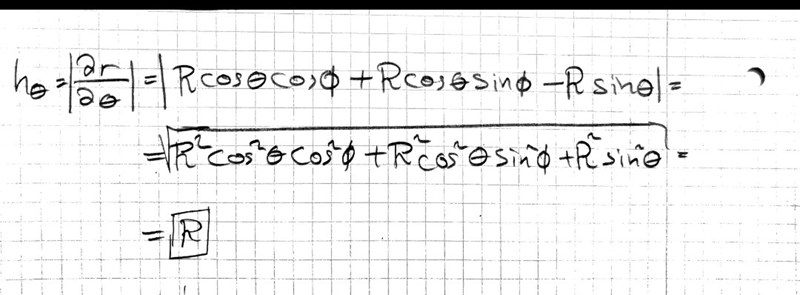 h_θ = |∂r/∂θ| = |R cosθ cosϕ + R cosθ sinϕ − R sinθ| =
= √(R² cos²θ cos²ϕ + R² cos²θ sin²ϕ + R² sin²θ) =
= R